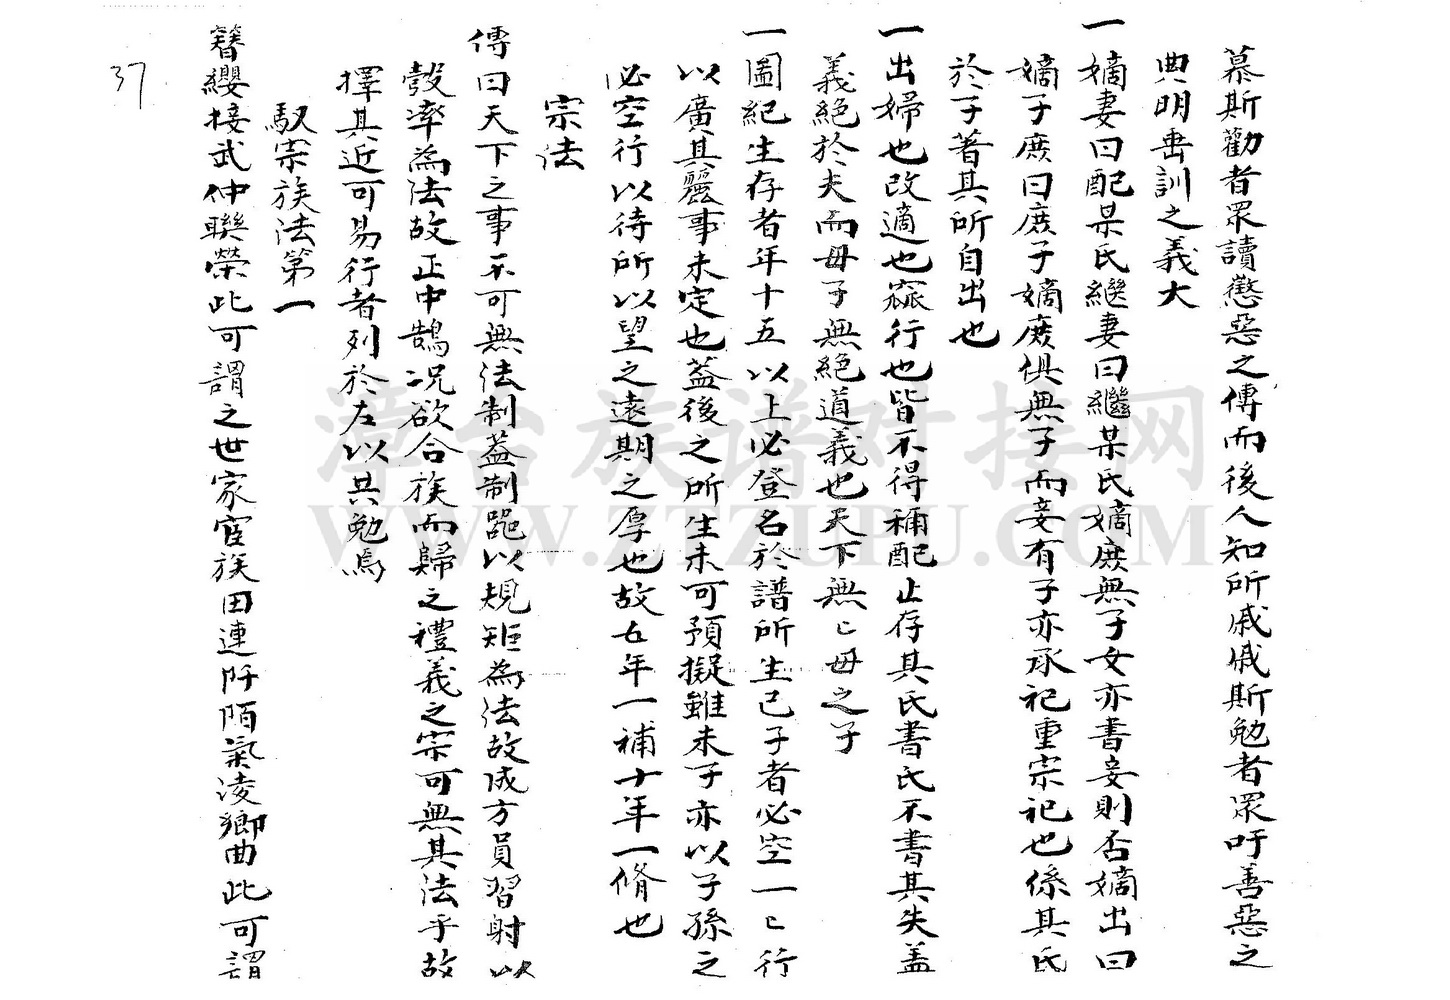 慕斯勸者眾讀懲惡之傳而後人知所戚戚斯勉者眾吁善惡之
典明垂訓之義大
一嫡妻曰配某氏繼妻曰繼某氏嫡庶無子女亦書妾則否嫡出曰
嫡子庶曰庶子嫡庶俱無子而妾有子亦承祀重宗祀也係其氏
於子著其所自出也
一出婦也改適也竄行也皆不得稱配止存其氏書氏不書其失盖
義絕於夫而母子無絕道義也天下無亡母之子
一圖紀生存者年十五以上必登名於譜所生已子者必空一亡行
以廣其麗事未定也蓋後之所生未可預擬雖未子亦以子孫之
必空行以待所以望之遠期之厚也故五年一補十年一脩也
宗法
傳曰天下之事不可無法制蓋制器以規矩為法故成方員習射以
彀率為法故正中鵠況欲合族而歸之禮義之宗可無其法乎故
擇其近可易行者列於左以共勉焉
馭宗族法第一
簪纓接武仲聯榮此可謂之世家宦族田連阡陌氣凌鄉曲此可謂
37
漳台族谱对接网
WWW.ZTZUPU.COM